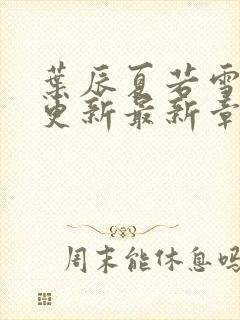 葉辰夏若雪
更新最新章
周末能休息吗